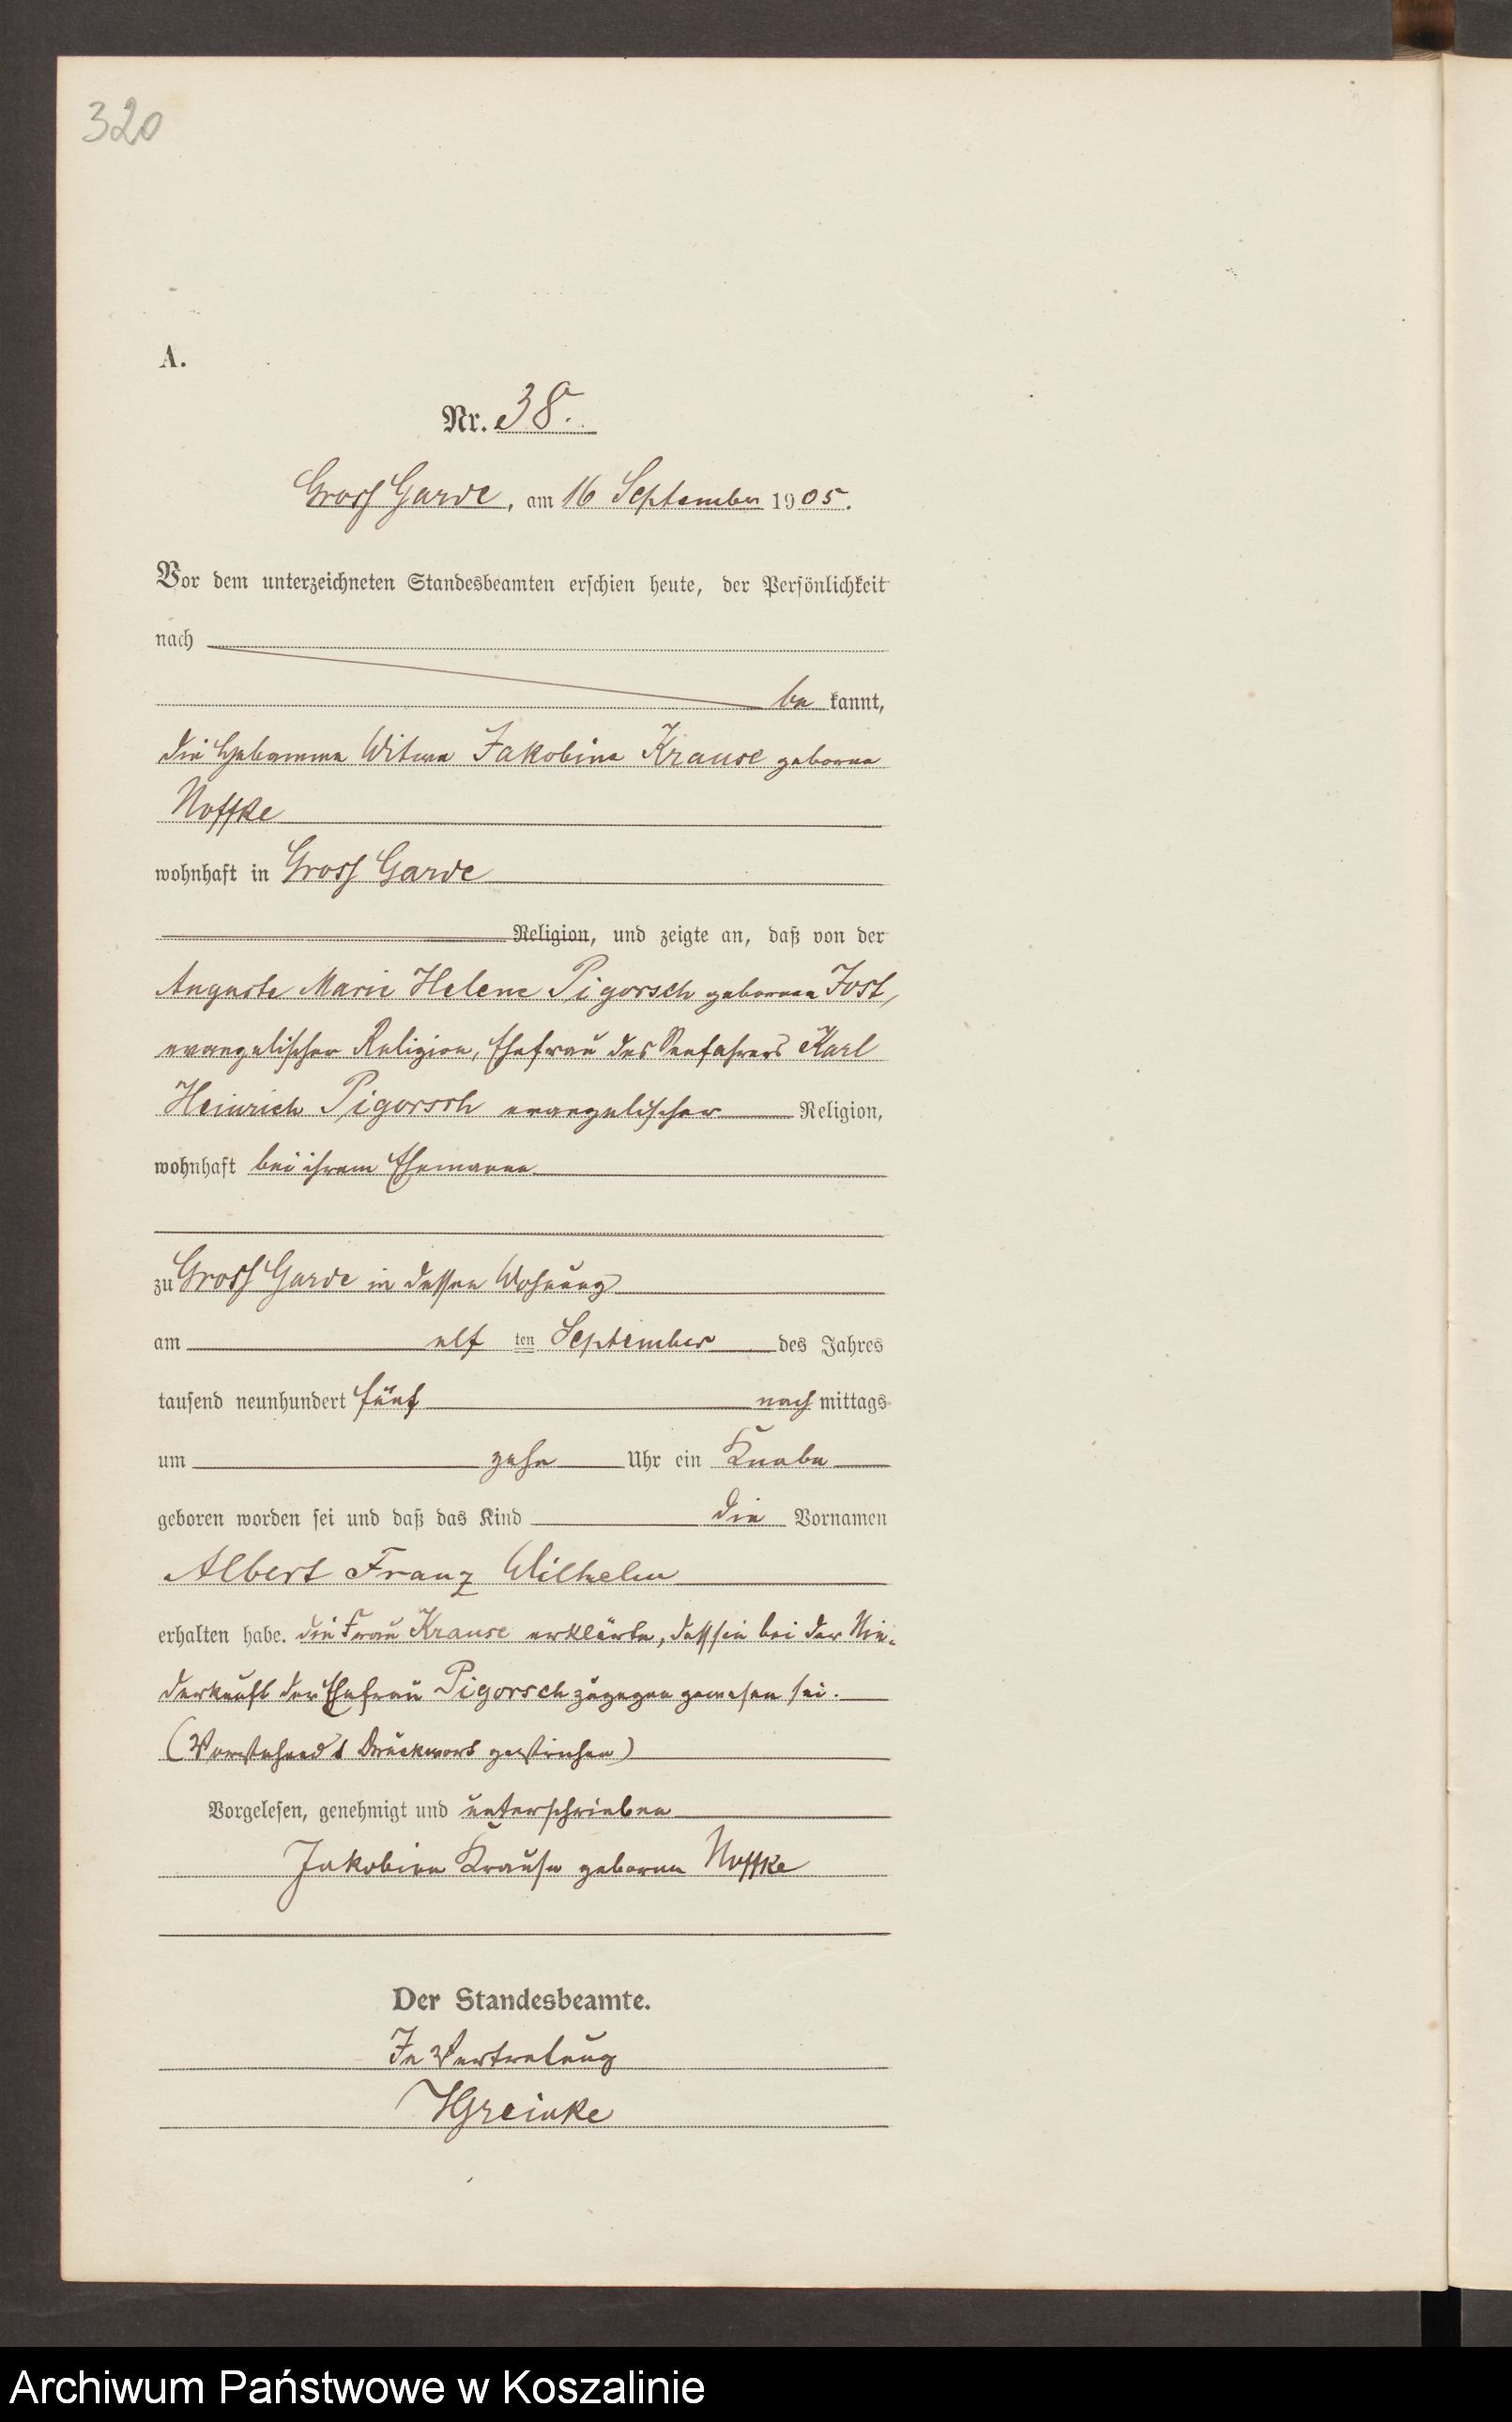 320
A.
Nr. 38.
Gross Garde, am 16 September 1905.
Vor dem unterzeichneten Standesbeamten erschien heute, der Persönlichkeit
nach
be kannt,
die Hebamme Witwe Jakobine Krause geborne
Noffke
wohnhaft in Gross Garde
Religion, und zeigte an, daß von der
Auguste Marie Helene Pigorsch gebornen Jost,
evangelischer Religion, Ehefrau des Seefahrers Karl
Heinrich Pigorsch evangelischer Religion,
wohnhaft bei ihrem Ehemanne
zu Gross Garde in dessen Wohnung
am elf ten September des Jahres
tausend neunhundert fünf nach mittags
um zehn Uhr ein Knabe
geboren worden sei und daß das Kind die Vornamen
Albert Franz Wilhelm
erhalten habe. die Frau Krause erklärte, dass sie bei der Nie-
derkunft der Ehefrau Pigorsch zugegen gewesen sei.
(Vorstehend 1 Druckwort gestrichen)
Vorgelesen, genehmigt und unterschrieben
Jakobine Krause geborne Noffke
Der Standesbeamte.
In Vertretung
HGreinke
Archiwum Państwowe w Koszalinie